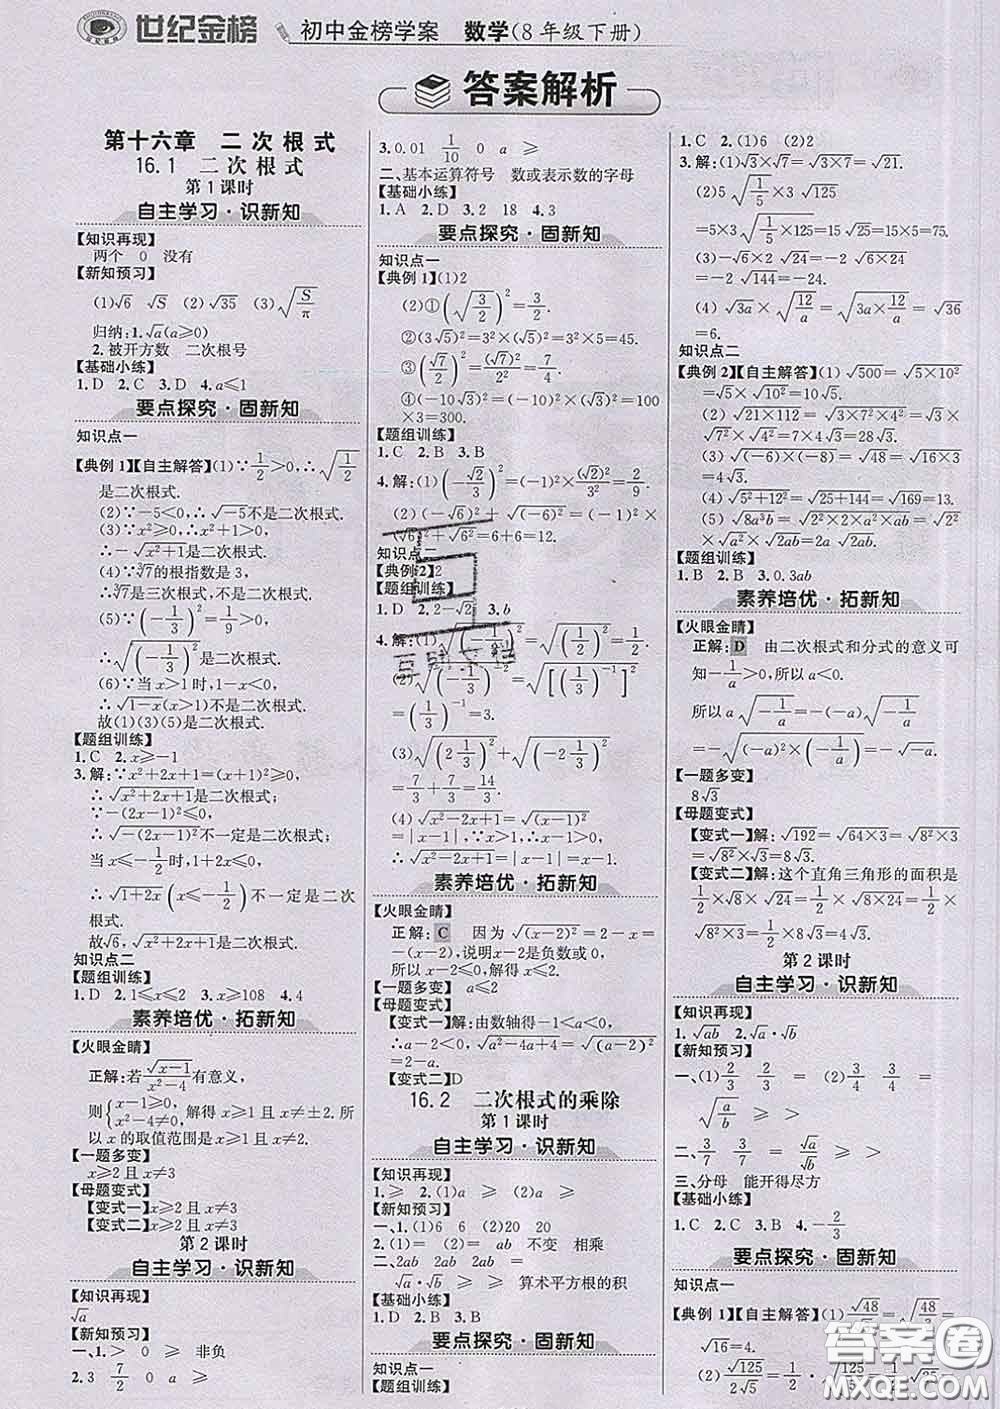 世纪金榜 初中金榜学案 数学(8年级下册)
答案解析
第十六章 二次根式
16.1 二次根式
第1课时
自主学习·识新知
【知识再现】
两个 0 没有
【新知预习】
(1)√6 √S (2)√35 (3)√(S/π)
归纳:1.√a(a≥0)
2.被开方数 二次根号
【基础小练】
1.D 2.C 3.D 4.a≤1
要点探究·固新知
知识点一
【典例1】【自主解答】(1)∵1/2>0,∴√(1/2)
是二次根式.
(2)∵-5<0,∴√-5不是二次根式.
(3)∵x²≥0,∴x²+1>0,
∴-√(x²+1)是二次根式.
(4)∵∛7的根指数是3,
∴∛7是三次根式,不是二次根式.
(5)∵(-1/3)²=1/9>0,
∴√((-1/3)²)是二次根式.
(6)∵当x>1时,1-x<0,
∴√(1-x)(x>1)不是二次根式.
故(1)(3)(5)是二次根式.
【题组训练】
1.C 2.x≥-1
3.解:∵x²+2x+1=(x+1)²≥0,
∴√(x²+2x+1)是二次根式.
∵-(2x-1)²≤0,
∴√(-(2x-1)²)不一定是二次根式;
当x<-1/2时,1+2x<0,
∴√(1+2x)(x<-1/2)不一定是二次
根式.
故√6,√(x²+2x+1)是二次根式.
知识点二
【题组训练】
1.D 2.1≤x≤2 3.x≥108 4.4
素养培优·拓新知
【火眼金睛】
正解:若√(x-1)/(x²-4)有意义,
则{x-1≥0, x²-4≠0, 解得x≥1且x≠±2.所
以x的取值范围是x≥1且x≠2.
【一题多变】
x≥2且x≠3
【母题变式】
【变式一】x≥2且x≠3
【变式二】x≥2且x≠3
第2课时
自主学习·识新知
【知识再现】
√a
【新知预习】
一、1.> 0 ≥ 非负
2.3 7/2 0 a ≥
3.0.01 1/10 0 a ≥
二、基本运算符号 数或表示数的字母
【基础小练】
1.A 2.D 3.2 18 4.3
要点探究·固新知
知识点一
【典例1】(1)2
(2)①(√(3/2))²=3/2.
②(3√5)²=3²×(√5)²=3²×5=45.
③(√7/2)²=(√7)²/2²=7/4.
④(-10√3)²=(-10)²×(√3)²=100
×3=300.
【题组训练】
1.C 2.B 3.B
4.解:(1)(-√2/3)²=(-1)²×(√2)²/3²=2/9.
(2)(-√6)²+√((-6)²)=(-1)²×
√6)²+√6²=6+6=12.
知识点二
【典例2】2
【题组训练】
1.D 2.2-√2 3.b
4.解:(1)√((-1/3)²)=√((1/3)²)=1/3.
=(1/3)⁻¹=3.
(3)√((2 1/3)²)+√((-2 1/3)²)
=7/3+7/3=14/3.
(4)√(x²-2x+1)=√((x-1)²)
=|x-1|,∵x>1,∴x-1>0,
∴√(x²-2x+1)=|x-1|=x-1.
素养培优·拓新知
【火眼金睛】
正解:C 因为√((x-2)²)=2-x=
-(x-2),说明x-2是负数或0,
所以x-2≤0,解得x≤2.
【一题多变】 a≤2
【母题变式】
【变式一】解:由数轴得-1<a<0,
∴a-2<0,√(a²-4a+4)=√((a-2)²)
=2-a.
【变式二】D
16.2 二次根式的乘除
第1课时
自主学习·识新知
【知识再现】
1.≥ 2.(1)a ≥ (2)a ≥
【新知预习】
一、1.(1)6 6 (2)20 20
2.(1)ab ab 不变 相乘
二、2ab 2ab 2ab =
√a·√b ≥ ≥ 算术平方根的积
【基础小练】
1.B 2.D 3.B
要点探究·固新知
知识点一
【题组训练】
1.C 2.(1)6 (2)2
3.解:(1)√3×√7=√(3×7)=√21.
(2)5√(1/5)×3√125
=5×3√(1/5×125)=15×5=75.
=-2√144=-24.
(4)√(3a)×√(12/a)=√(3a×12/a)=√36
=6.
知识点二
【典例2】【自主解答】(1)√500=√(5×10²)
=√5×√(10²)=10√5.
(2)√(21×112)=√(3×7²×4²)=√3×
√7²×√4²=7×4√3=28√3.
(3)√((-6)×(-8))=√48=√(16×3)
=4√3.
(4)√(5²+12²)=√(25+144)=√169=13.
(5)√(8a³b)=√(2²×2×a²×ab)=√2²
×√a²×√(2ab)=2a√(2ab).
【题组训练】
1.B 2.B 3.0.3ab
素养培优·拓新知
【火眼金睛】
正解:D 由二次根式和分式的意义可
知-1/a>0,所以a<0.
所以a√(-1/a)=-(-a)√(-1/a)
=-√((-a)²×(-1/a))=-√-a.
【一题多变】
8√3
【母题变式】
【变式一】解:√192=√(64×3)=√(8²×3)
=√8²×√3=8√3.
【变式二】解:这个直角三角形的面积是
1/2×√8×√24=1/2×√(8×24)=1/2
×√(8²×3)=1/2×8√3=4√3.
第2课时
自主学习·识新知
【知识再现】
1.√ab 2.√a·√b
【新知预习】
一、(1)2/3 2/3 = (2)3/4 3/4 =
√(a/b) ≥ >
二、3/7 3/7 = √a/√b ≥ >
三、分母 能开得尽方
【基础小练】
1.C 2.C 3.B 4.-2/3
要点探究·固新知
知识点一
【典例1】【自主解答】(1)√48/√3=√(48/3)=
√16=4.
(2)√125/(2√5)=1/2·√(125/5)=1/2×√25
答案圈
MXQE.COM